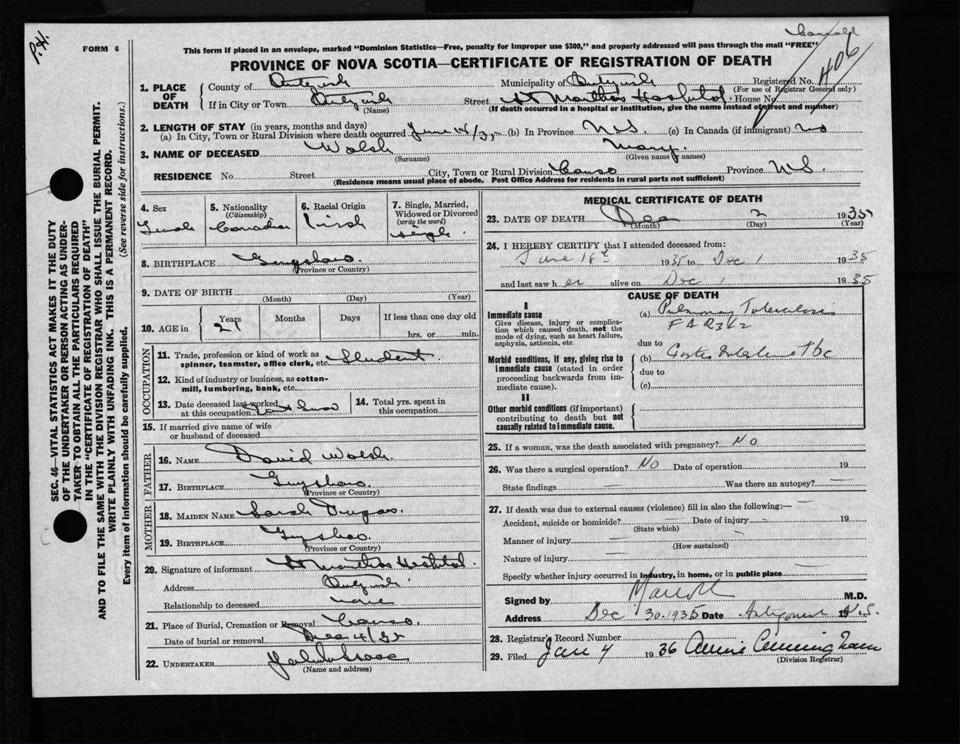 P.H.
FORM 6
This form if placed in an envelope, marked "Dominion Statistics—Free, penalty for improper use $300," and properly addressed will pass through the mail "FREE"
406
PROVINCE OF NOVA SCOTIA—CERTIFICATE OF REGISTRATION OF DEATH
SEC. 46—VITAL STATISTICS ACT MAKES IT THE DUTY
OF THE UNDERTAKER OR PERSON ACTING AS UNDER-
TAKER TO OBTAIN ALL THE PARTICULARS REQUIRED
IN THE "CERTIFICATE OF REGISTRATION OF DEATH"
AND TO FILE THE SAME WITH THE DIVISION REGISTRAR WHO SHALL ISSUE THE BURIAL PERMIT.
WRITE PLAINLY WITH UNFADING INK. THIS IS A PERMANENT RECORD.
Every item of information should be carefully supplied. (See reverse side for instructions.)
1. PLACE OF DEATH County of Municipality of Registered No.
(For use of Registrar General only)
If in City or Town (Name) Street St Marthas Hospital House No.
(If death occurred in a hospital or institution, give the name instead of street and number)
2. LENGTH OF STAY (in years, months and days)
(a) In City, Town or Rural Division where death occurred June (b) In Province N.S. (c) In Canada (if immigrant) no
3. NAME OF DECEASED Walsh (Surname) Mary (Given name or names)
RESIDENCE No. Street City, Town or Rural Division Canso Province N.S.
(Residence means usual place of abode. Post Office Address for residents in rural parts not sufficient)
4. Sex Female
5. Nationality (Citizenship) Canadian
6. Racial Origin Irish
7. Single, Married, Widowed or Divorced (write the word) Single
8. BIRTHPLACE Guysboro (Province or Country)
9. DATE OF BIRTH (Month) (Day) (Year)
10. AGE in Years 21 Months Days If less than one day old hrs. or min.
OCCUPATION
11. Trade, profession or kind of work as spinner, teamster, office clerk, etc. Student
12. Kind of industry or business, as cotton-mill, lumbering, bank, etc.
13. Date deceased last worked at this occupation
14. Total yrs. spent in this occupation
15. If married give name of wife or husband of deceased
FATHER
16. NAME David Walsh
17. BIRTHPLACE Guysboro (Province or Country)
MOTHER
18. MAIDEN NAME Sarah
19. BIRTHPLACE Guysboro (Province or Country)
20. Signature of informant St Marthas Hospital
Address
Relationship to deceased none
21. Place of Burial, Cremation or Removal Canso
Date of burial or removal Dec 4/35
22. UNDERTAKER (Name and address)
MEDICAL CERTIFICATE OF DEATH
23. DATE OF DEATH Dec (Month) 2 (Day) 1935 (Year)
24. I HEREBY CERTIFY that I attended deceased from:
June 18th 1935 to Dec 1 1935
and last saw her alive on Dec 1 1935
CAUSE OF DEATH
I
Immediate cause
Give disease, injury or complication which caused death, not the mode of dying, such as heart failure, asphyxia, asthenia, etc
(a) Pulmonary Tuberculosis
due to
Morbid conditions, if any, giving rise to immediate cause (stated in order proceeding backwards from immediate cause).
(b) Gastro Intestinal tbc
due to
(c)
II
Other morbid conditions (if important) contributing to death but not causally related to immediate cause.
25. If a woman, was the death associated with pregnancy? No
26. Was there a surgical operation? No Date of operation 19
State findings Was there an autopsy?
27. If death was due to external causes (violence) fill in also the following:—
Accident, suicide or homicide? (State which) Date of injury 19
Manner of injury (How sustained)
Nature of injury
Specify whether injury occurred in industry, in home, or in public place
Signed by M.D.
Address Dec 30. 1935 Date 19 N.S.
28. Registrar's Record Number
29. Filed Jan 4 1936 Annie Cunningham (Division Registrar)